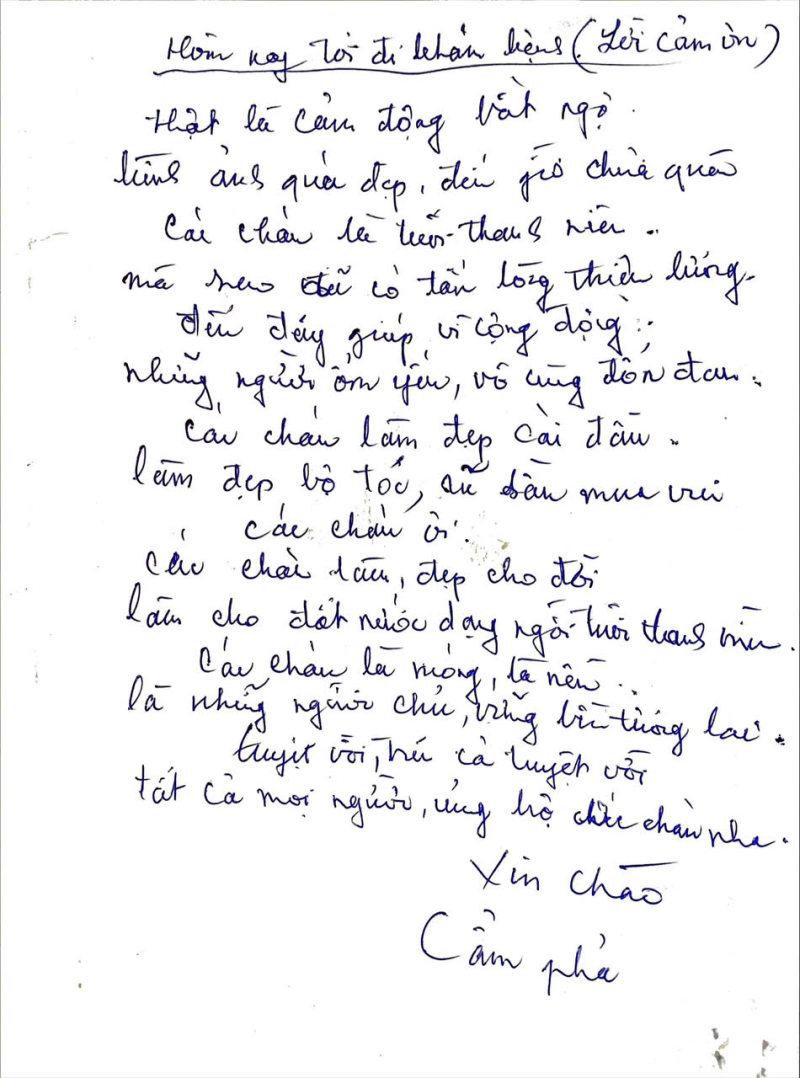 Hôm nay tôi đi khám bệnh (Lời cảm ơn)
Thật là cảm động bất ngờ.
hình ảnh quá đẹp, đến giờ chưa quên
Các cháu là tuổi thanh niên ..
mà sao đã có tấm lòng thiện lương.
đến đây, giúp, vì cộng đồng;.
những người ốm yếu, vô cùng đớn đau.
Các cháu làm đẹp cái đầu.
làm đẹp bộ tóc, mua vui
các cháu ơi.
các cháu làm, đẹp cho đời
làm cho đất nước dạng ngời tuổi thanh niên.
Các cháu là móng, là nền..
là những người chủ, vững bền tương lai.
tuyệt vời, cả tuyệt vời
tất cả mọi người, ủng hộ các cháu nha.
Xin chào
Cẩm phả